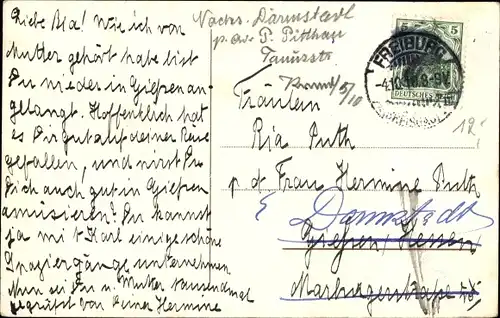 Liebe Ria! Wie ich von
Mutter gehört habe bist
Du wieder in Gießen an-
gelangt. Hoffentlich hat
es Dir gut auf deiner Reise
gefallen, und wirst Du
Dich auch gut in Gießen
amüsieren! Du kannst
ja mit Karl einige schöne
Spaziergänge unternehmen
Nun sei Du u. Mutter tausendmal
gegrüßt von Deiner Hermine
Nachs. Darmstadt
P. Pitthan
Taunusstr
5/10
Fräulein
Ria Puth
p. d. Frau Hermine Puth
Darmstadt
Gießen, Hessen
Marburgerstraße
FREIBURG
8-9V
DEUTSCHES
5
12,-